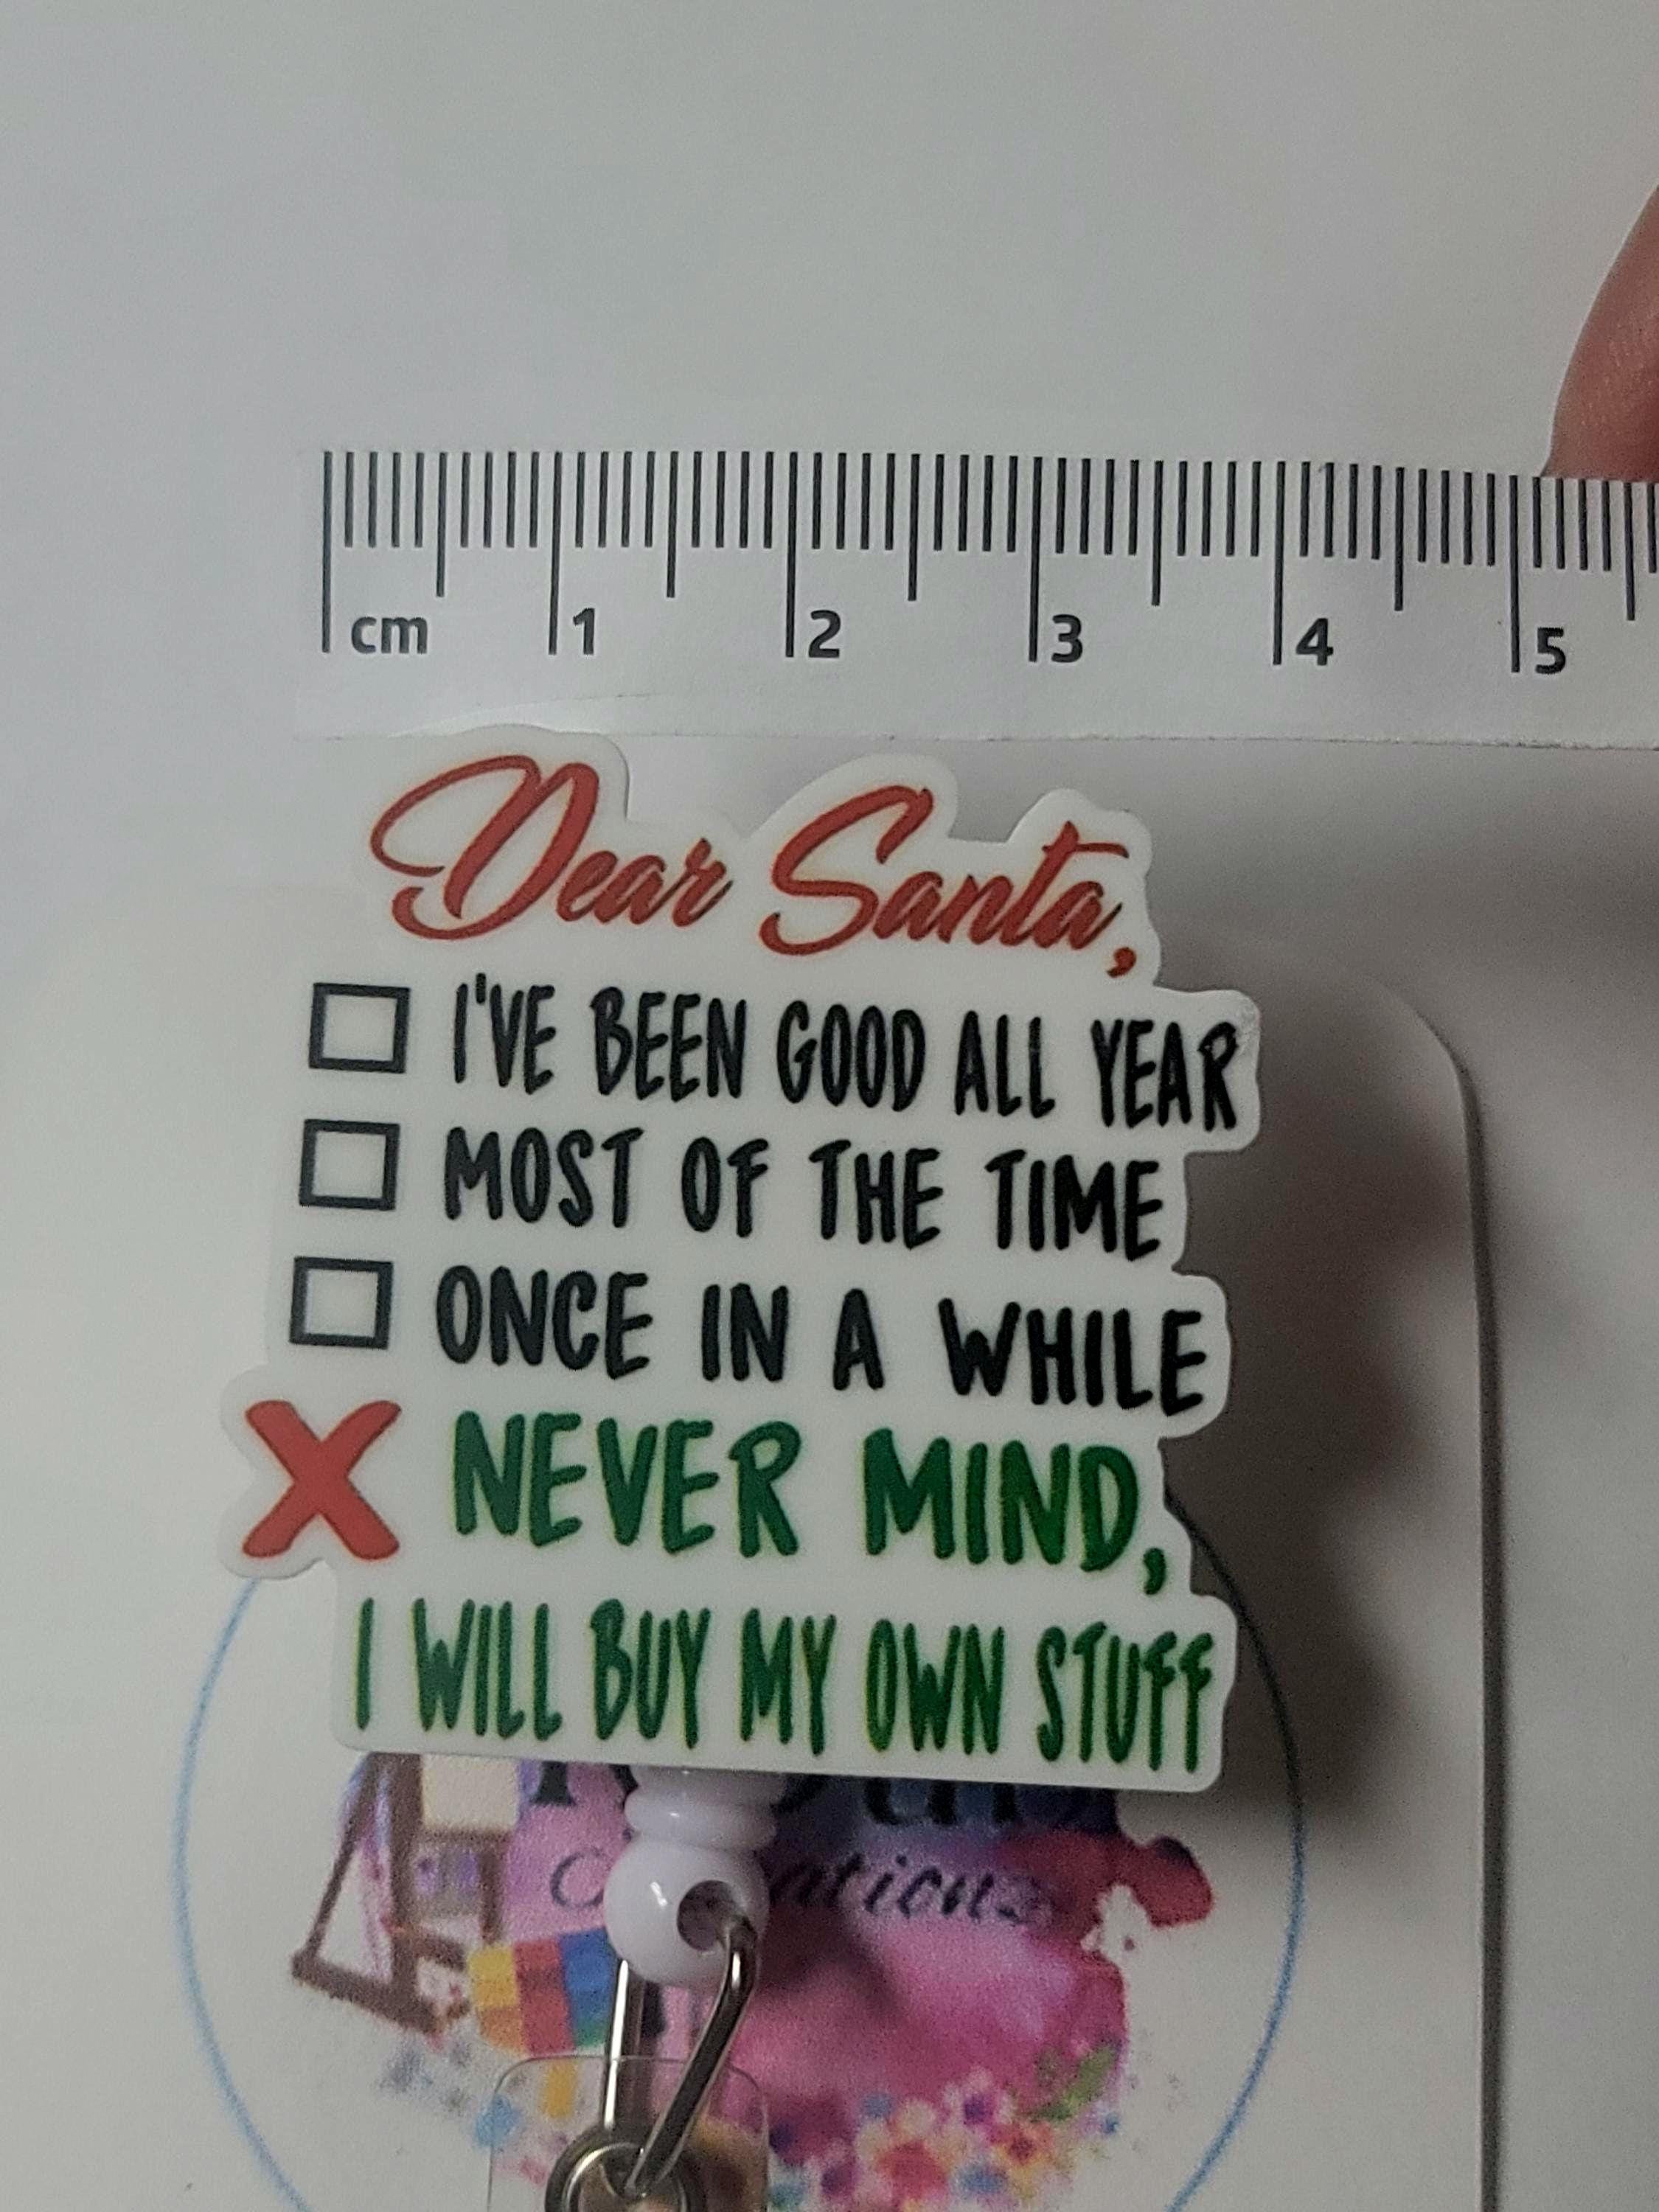 cm 1 2 3 4 5
Dear Santa,
I'VE BEEN GOOD ALL YEAR
MOST OF THE TIME
ONCE IN A WHILE
X NEVER MIND,
I WILL BUY MY OWN STUFF